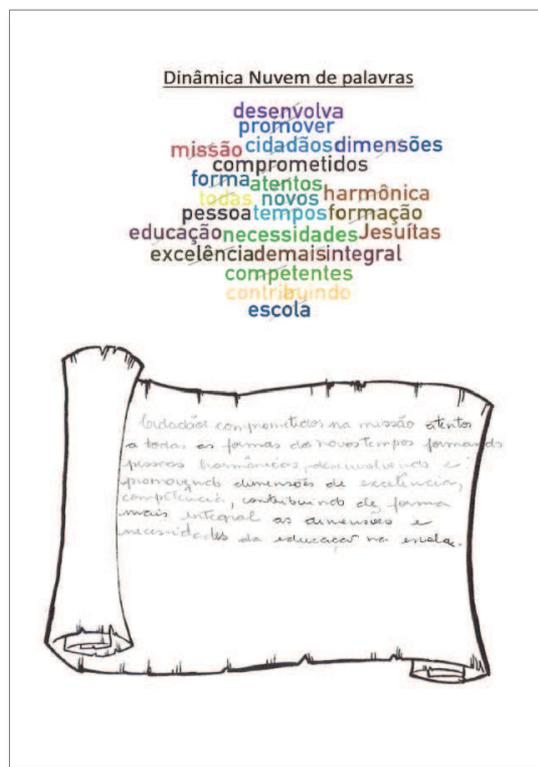 Dinâmica Nuvem de palavras
desenvolva
promover
missão cidadãos dimensões
comprometidos
forma atentos
todas novos harmônica
pessoa tempos formação
educação necessidades Jesuítas
excelência demais integral
competentes
contribuindo
escola
Cidadãos comprometidos na missão atentos
a todas as formas dos novos tempos formando
pessoas harmônicas, desenvolvendo e
promovendo dimensões de excelência,
competência, contribuindo de forma
mais integral as dimensões e
necessidades da educação na escola.